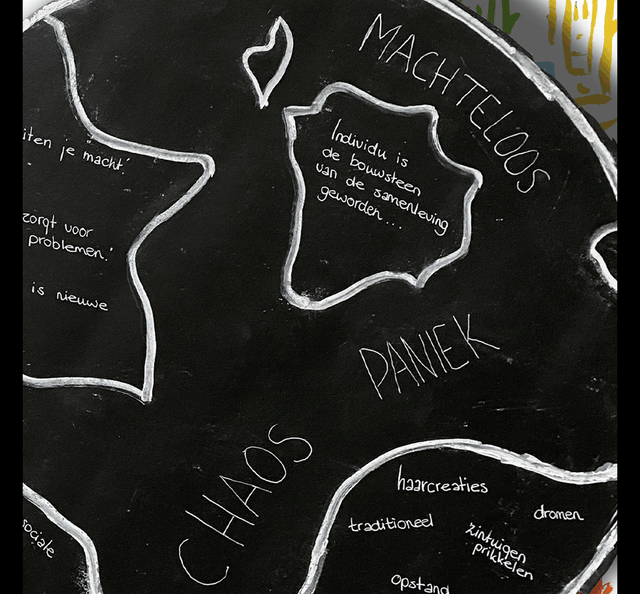 MACHTELOOS
iten je macht.'
zorgt voor
problemen.'
is nieuwe
Individu is
de bouwsteen
van de samenleving
geworden...
PANIEK
CHAOS
sociale
haarcreaties
traditioneel
dromen
zintuigen
prikkelen
opstand